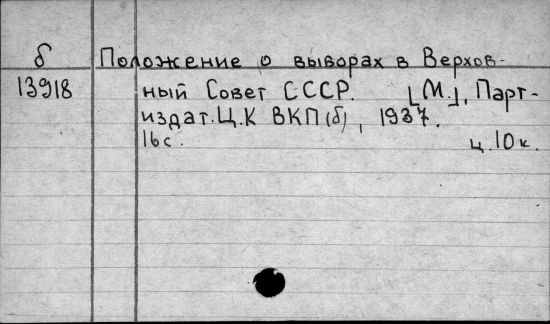 б Положение о выборах в Верхов-
13918 ный Совет СССР. [М.], Парт-
издат.Ц.К ВКП(б), 1937.
16с. ц.10к.